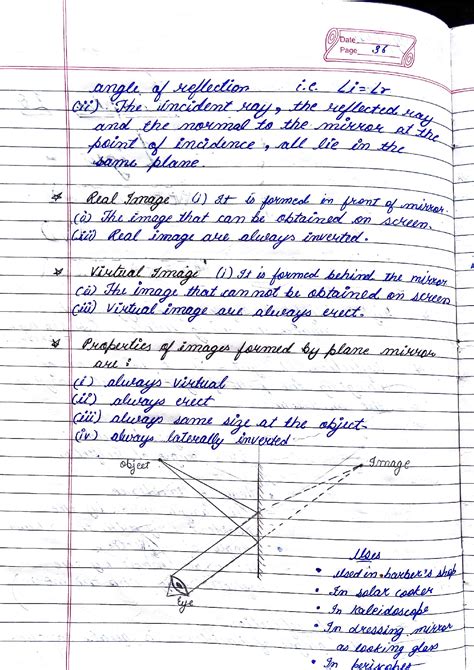 Date
Page 36
angle of reflection i.e. Li = Lr
(ii) The incident ray, the reflected ray
and the normal to the mirror at the
point of incidence, all lie in the
same plane.
* Real Image (i) It is formed in front of mirror.
(ii) The image that can be obtained on screen.
(iii) Real image are always inverted.
* Virtual Image (i) It is formed behind the mirror
(ii) The image that can not be obtained on screen
(iii) Virtual image are always erect.
* Properties of images formed by plane mirror
are:
(i) always virtual
(ii) always erect
(iii) always same size at the object.
(iv) always laterally inverted
Object
Image
Eye
Uses
• Used in barber's shop
• In solar cooker
• In Kaleidoscope
• In dressing mirror
as looking glass
• In periscopes